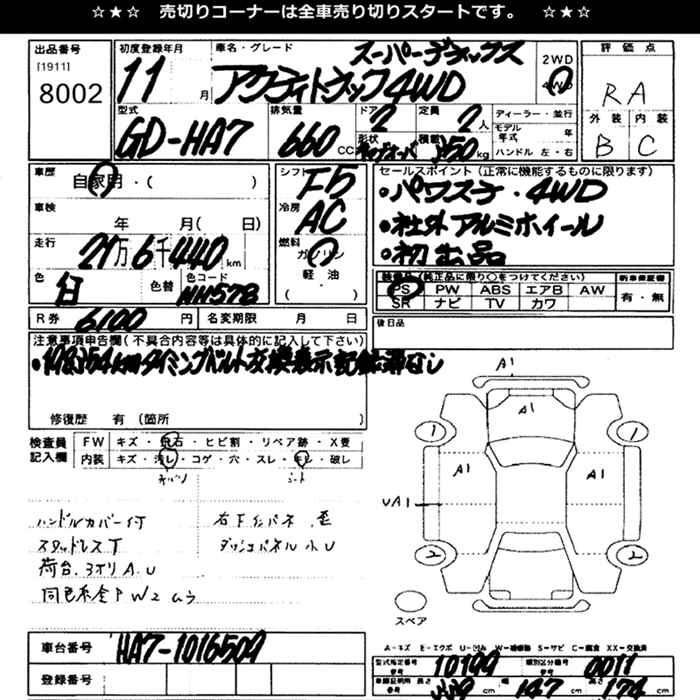 ☆★☆ 売切りコーナーは全車売り切りスタートです。 ☆★☆
出品番号
[1911]
8002
初度登録年月
11 月
車名・グレード
スーパーデラックス
アクティトラック4WD
2WD
4WD
評価点
RA
外装 内装
B C
型式
GD-HA7
排気量
660 CC
ドア
2
形状
定員
2 人
積載
350 kg
ディーラー・並行
モデル年式 年
ハンドル 左・右
車歴
自家用・( )
車検
年 月( 日)
走行
21万6千440 km
色
白
色替
色コード
NH578
シフト
F5
冷房
AC
燃料
ガソリン
軽・油
・( )
セールスポイント(正常に機能するものに限ります)
・パワステ・4WD
・社外アルミホイール
・初出品
装備品(純正品に限り○をつけてください)
PS PW ABS エアB AW
SR ナビ TV カワ
新車保証書
有・無
R券 6100 円
名変期限 月 日
後日品
注意事項申告欄(不具合内容等は具体的に記入して下さい)
・108354kmタイミングベルト交換表示記録簿なし
修復歴 有(箇所 )
検査員記入欄
FW キズ・飛石・ヒビ割・リペア跡・X要
内装 キズ・汚レ・コゲ・穴・スレ・キレ・破レ
シート
ハンドルカバー付
スタッドレスT
荷台、3オリA.U
右下インパネ 歪
ダッシュパネル小U
A1
A1
1
1
A1
A1
UA1
2
2
スペア
車台番号 HA7-1016509
登録番号
A-キズ E-エクボ U-凹み W-補修跡 S-サビ C-腐食 XX-交換済
型式指定番号 10199
類別区分番号 0011
参考
車検証明用 長さ cm 幅 147 cm 高さ 174 cm